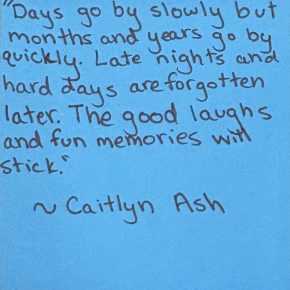 "Days go by slowly but
months and years go by
quickly. Late nights and
hard days are forgotten
later. The good laughs
and fun memories will
stick."
~ Caitlyn Ash